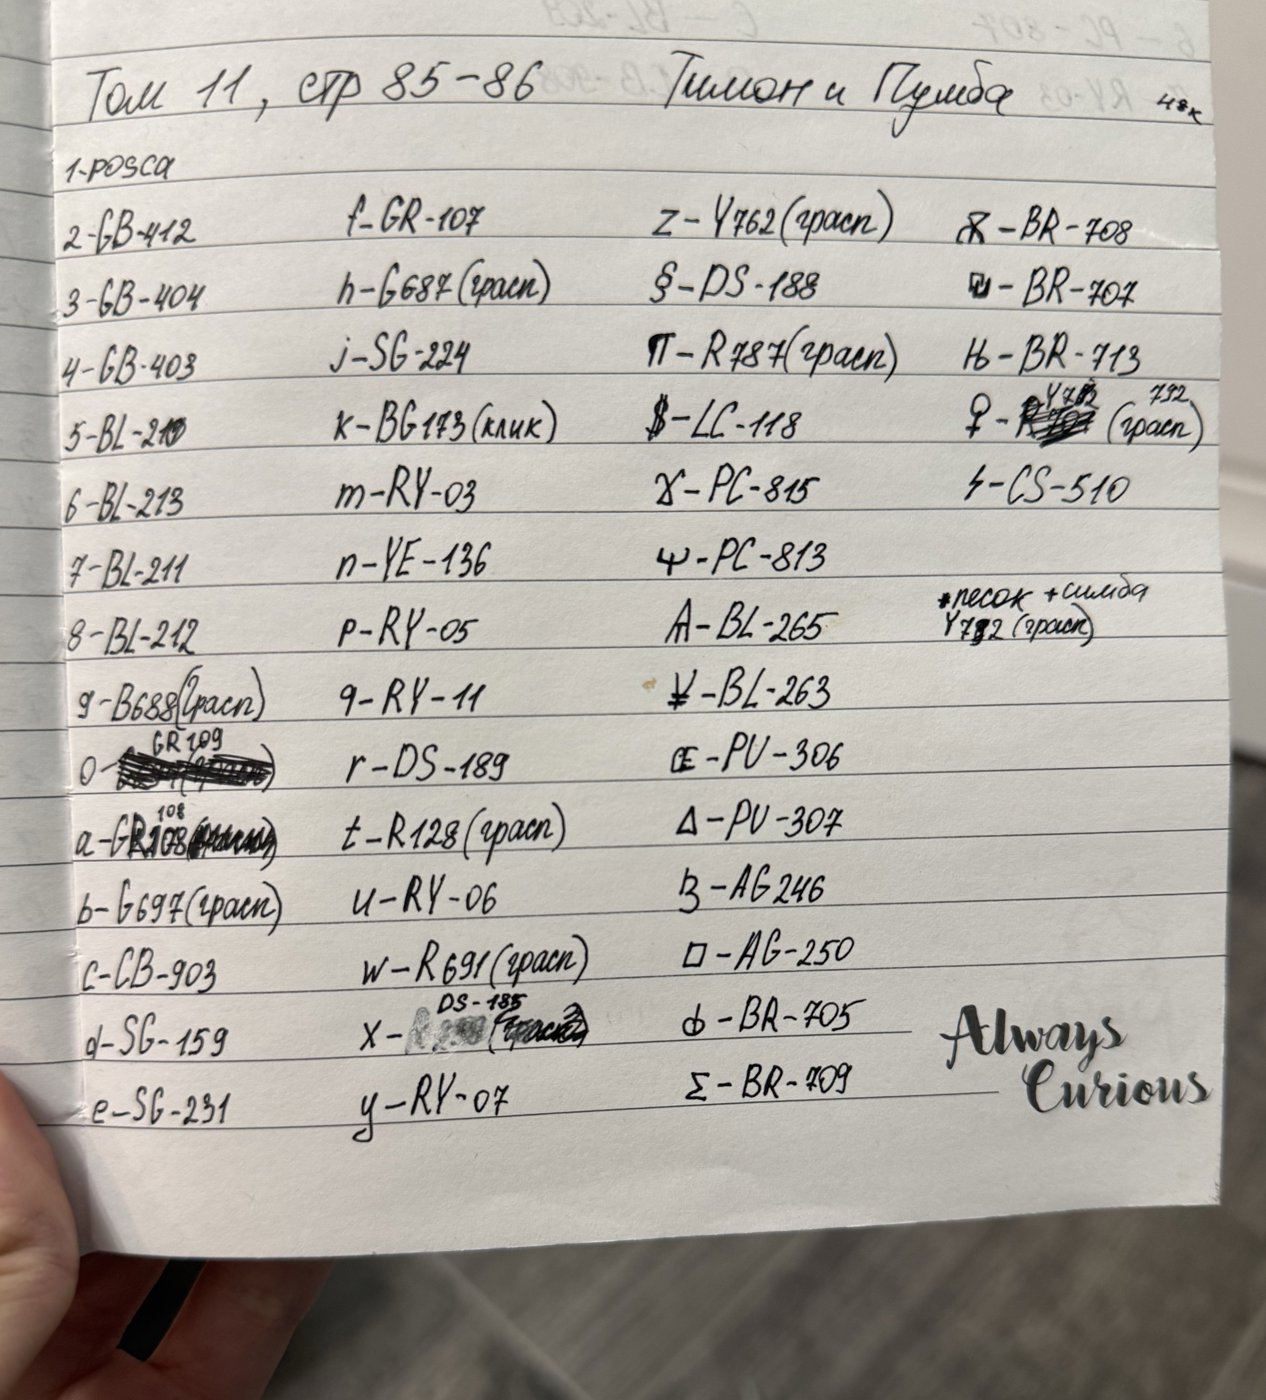 Том 11, стр 85-86 Тимон и Пумба 48к
1-POSCA
2-GB-412
3-GB-404
4-GB-403
5-BL-210
6-BL-213
7-BL-211
8-BL-212
9-B688(грасп)
0- GR109
a-GR108
b-G697(грасп)
c-CB-903
d-SG-159
e-SG-231
f-GR-107
h-G687(грасп)
j-SG-224
k-BG173(клик)
m-RY-03
n-YE-136
p-RY-05
q-RY-11
r-DS-189
t-R128(грасп)
u-RY-06
w-R691(грасп)
x- DS-185
y-RY-07
z-Y762(грасп)
§-DS-188
П-R787(грасп)
$-LC-118
Ɣ-PC-815
Ψ-PC-813
A-BL-265
¥-BL-263
Œ-PU-306
Δ-PU-307
З-AG246
□-AG-250
ф-BR-705
Σ-BR-709
Ж-BR-708
-BR-707
Њ-BR-713
♀- 792 (грасп)
ϟ-CS-510
*песок +симба
Y792 (грасп)
Always
Curious